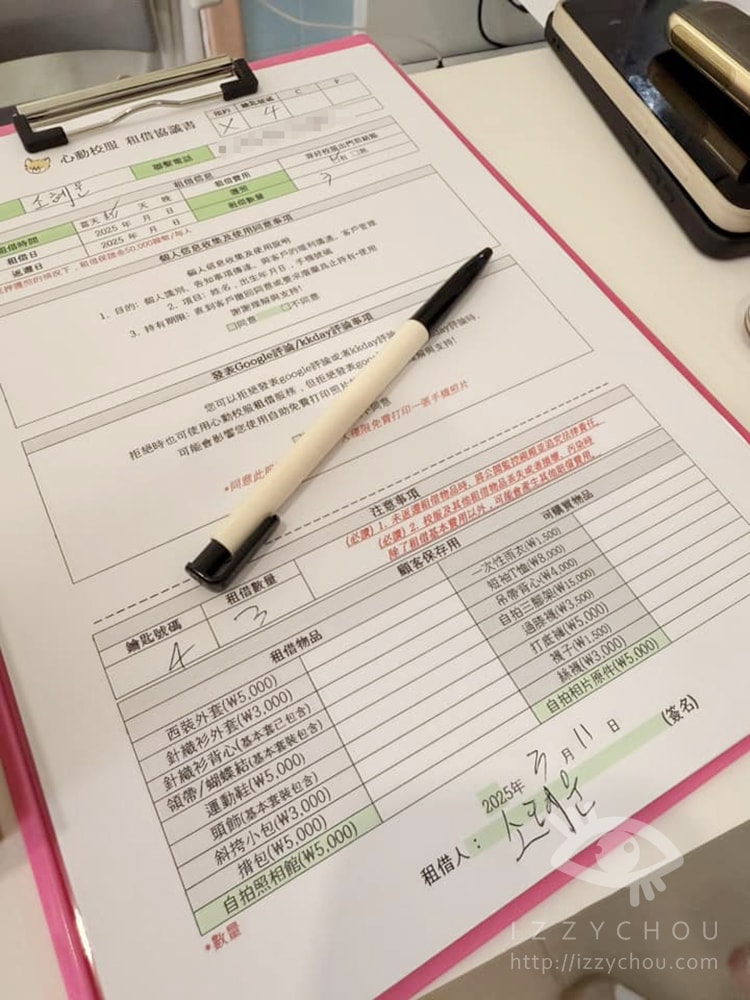 心動校服 租借協議書
預約 鑰匙號碼 C P
X 4
聯繫電話
租借信息
租借費用
3
租借時間 當天 天 晚 種別
租借日 2025 年 月 日 租借數量
返還日 2025 年 月 日
租借保證金50,000韓幣/每人
個人信息收集及使用同意事項
個人信息收集及使用說明
1. 目的: 個人識別、告知事項傳達、與客戶的順利溝通、客戶管理
2. 項目: 姓名,出生年月日,手機號碼
3. 持有期限: 直到客戶撤回同意或要求廢棄為止持有·使用
謝謝理解與支持!
□同意 □不同意
發表Google評論/kkday評論事項
您可以拒絕發表google評論或者kkday評論
拒絕時也可使用心動校服租借服務,但拒絕發表
可能會影響您使用自助免費打印照片
不同意
*同意此
免費打印一張手機照片
注意事項
(必讀) 1. 未返還租借物品時, 將公開監控視頻並追究法律責任。
(必讀) 2. 校服及其他租借物品丟失或者損壞, 污染時
除了租借基本費用以外, 可能會產生其他賠償費用。
鑰匙號碼 租借數量 顧客保存用
4 3
租借物品 可購買物品
西裝外套(₩5,000) 一次性雨衣(₩1,500)
針織衫外套(₩3,000) 短袖T恤(₩8,000)
針織衫背心(基本套已包含) 吊帶背心(₩4,000)
領帶/蝴蝶結(基本套裝包含) 自拍三腳架(₩15,000)
運動鞋(₩5,000) 過膝襪(₩3,500)
頭飾(基本套裝包含) 打底褲(₩5,000)
斜挎小包(₩3,000) 襪子(₩1,500)
揹包(₩5,000) 絲襪(₩3,000)
自拍照相館(₩5,000) 自拍相片原件(₩5,000)
*數量
2025年 3 月 11 日
租借人: (簽名)
IZZYCHOU
http://izzychou.com